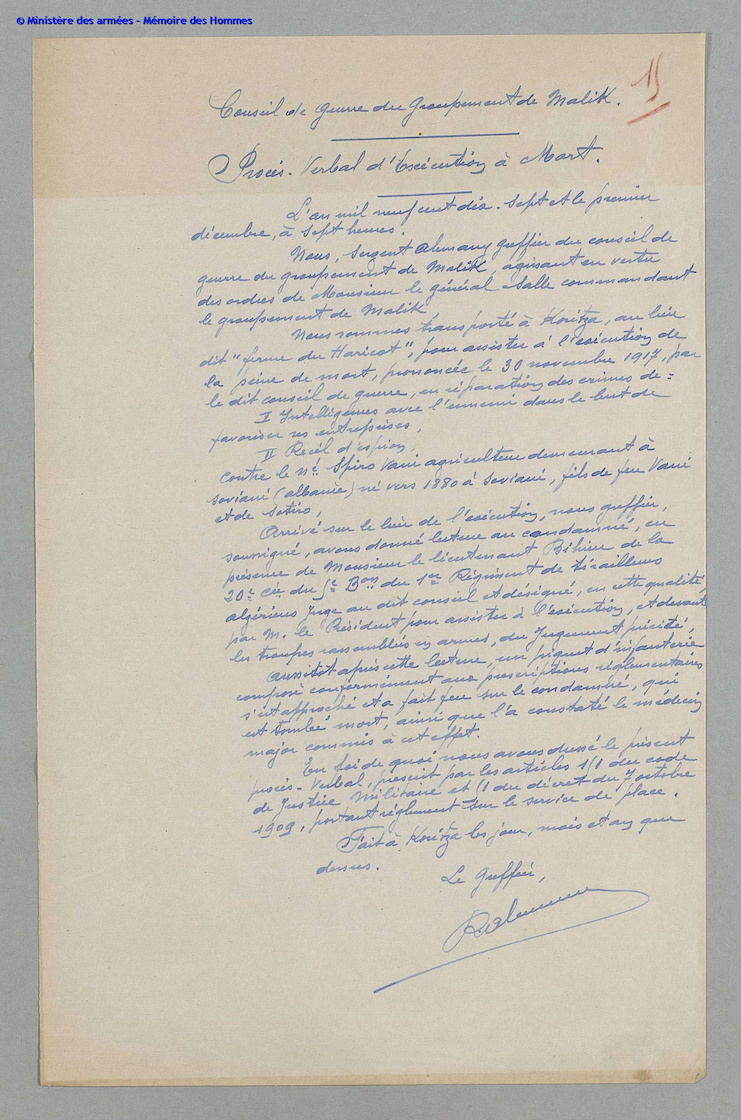 © Ministère des armées - Mémoire des Hommes
Conseil de guerre du Groupement de Malik.
Procès-Verbal d'Exécution à Mort.
L'an mil neuf cent dix-sept et le premier
décembre, à sept heures.
Nous, Sergent Alemany greffier du conseil de
guerre du groupement de Malik, agissant en vertu
des ordres de Monsieur le général Salle commandant
le groupement de Malik
Nous sommes transporté à Koritza, au lieu
dit "ferme du Haricot", pour assister à l'exécution de
la peine de mort, prononcée le 30 novembre 1917, par
le dit conseil de guerre, en réparation des crimes de :
I Intelligences avec l'ennemi dans le but de
favoriser ses entreprises,
II Recel d'espion,
contre le né Spiro Vani agriculteur demeurant à
Soviani (Albanie) né vers 1880 à Soviani, fils de feu Vani
et de Sotiro,
Arrivé sur le lieu de l'exécution, nous greffier,
soussigné, avons donné lecture au condamné, en
présence de Monsieur le lieutenant Bihier de la
20e Cie du 5e Bon du 1er Régiment de tirailleurs
algériens Juge au dit conseil et désigné, en cette qualité,
par M. le Président pour assister à l'exécution, et devant
les troupes rassemblées en armes, du Jugement précité,
Aussitôt après cette lecture, un piquet d'infanterie
composé conformément aux prescriptions réglementaires
s'est approché et a fait feu sur le condamné, qui
est tombé mort, ainsi que l'a constaté le médecin
major commis à cet effet.
En foi de quoi nous avons dressé le présent
procès-verbal, prescrit par les articles 151 du code
de Justice Militaire et 51 du décret du 7 octobre
1909, portant réglement sur le service de place.
Fait à Koritza les jour, mois et an que
dessus.
Le Greffier,